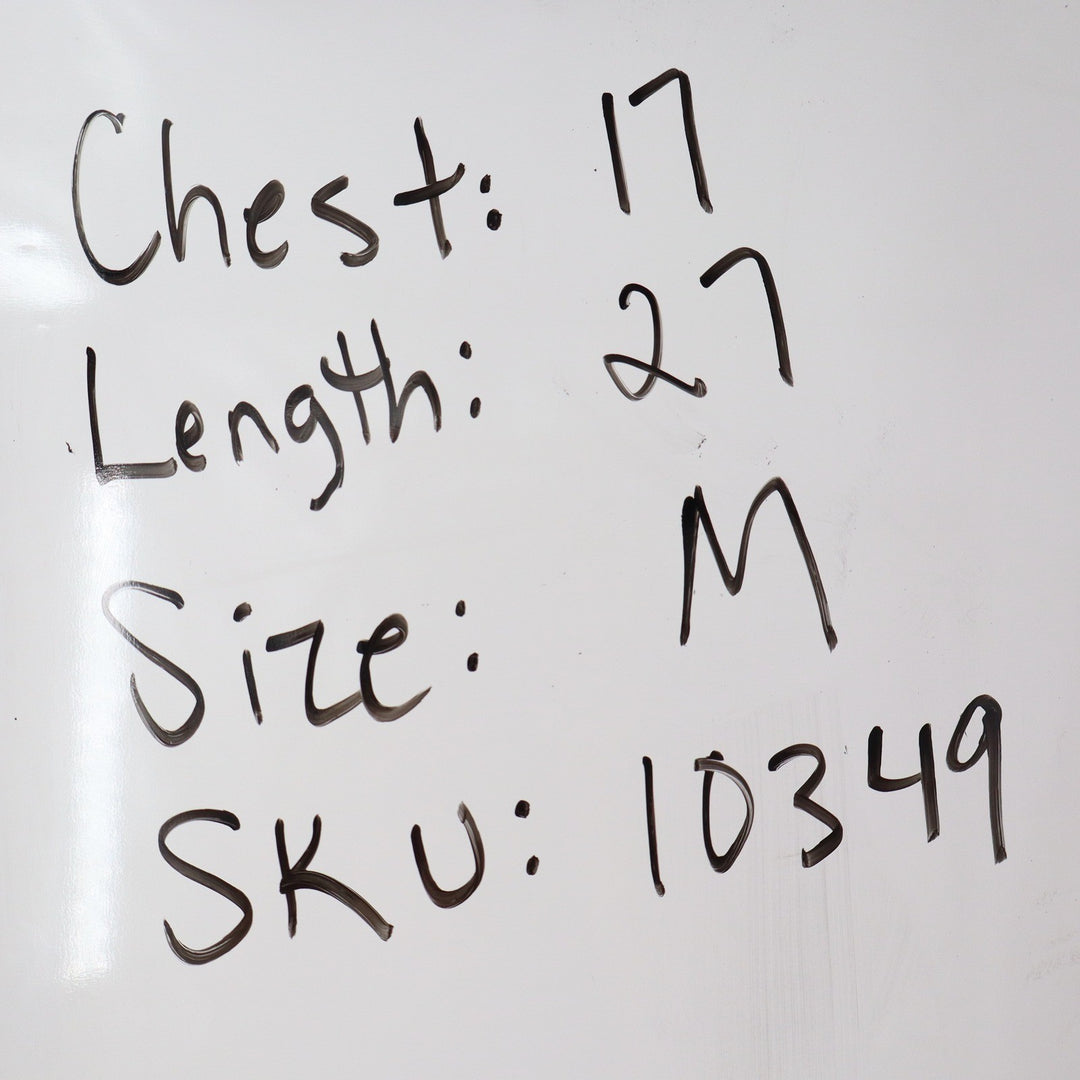 Chest: 17
Length: 27
Size: M
SKU: 10349